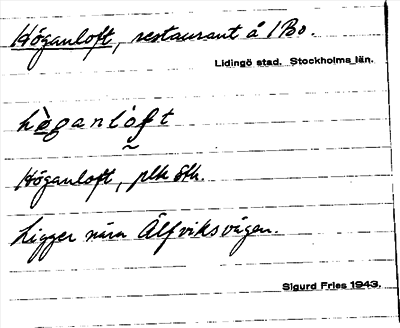 Höganloft, restaurant å 1 Bo.
Lidingö stad. Stockholms län.
hǫ̀ganlòft
Höganloft, plk Sth.
Ligger nära Älfviksvägen.
Sigurd Fries 1943.